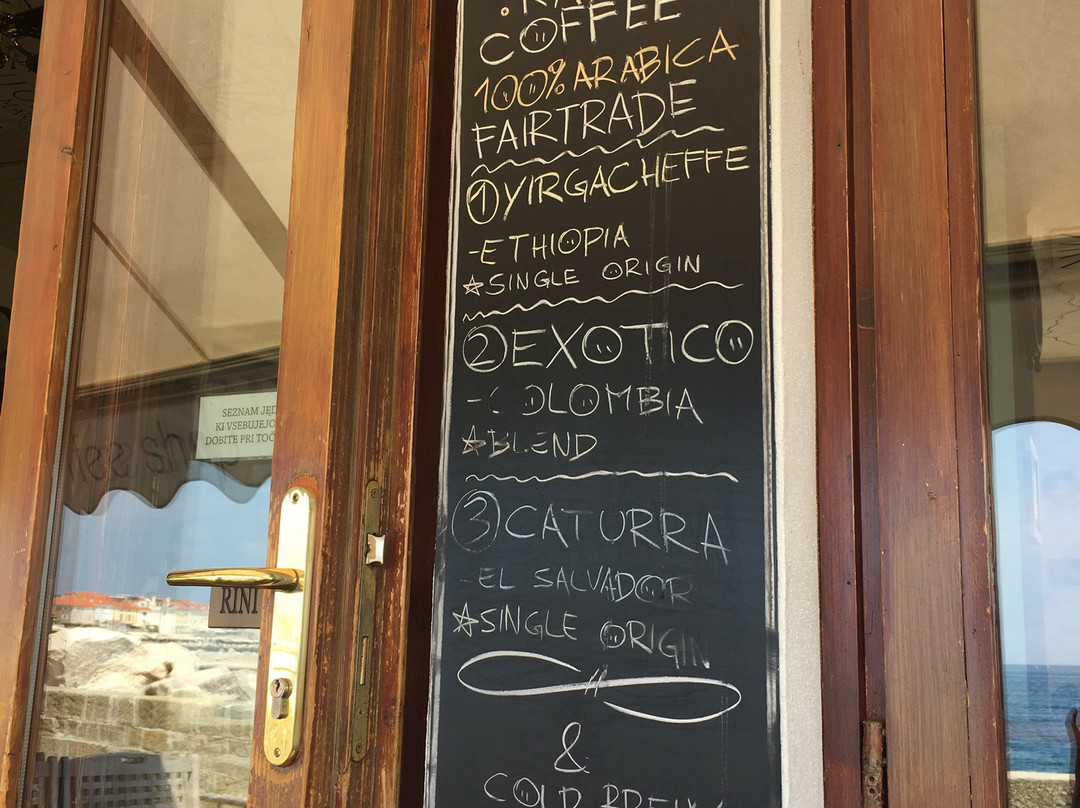 COFFEE
100% ARABICA
FAIRTRADE
1 YIRGACHEFFE
-ETHIOPIA
☆SINGLE ORIGIN
2 EXOTICO
-COLOMBIA
☆BLEND
3 CATURRA
-EL SALVADOR
☆SINGLE ORIGIN
&
COLD BREW
SEZNAM JED
KI VSEBUJEJO
DOBITE PRI TOČ
RINI